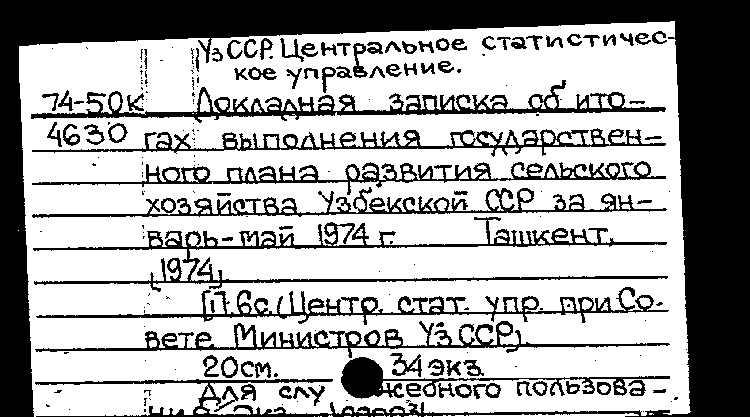 УзССР. Центральное статистичес-
кое управление.
74-50к Докладная записка об ито-
4630 гах выполнения государствен-
ного плана развития сельского
хозяйства Узбекской ССР за ян-
варь-май 1974 г. Ташкент,
[1974]
[1], 6с. (Центр. стат. упр. при Со-
вете Министров УзССР).
20см. 34 экз.
Для служебного пользова-
ния. Экз.